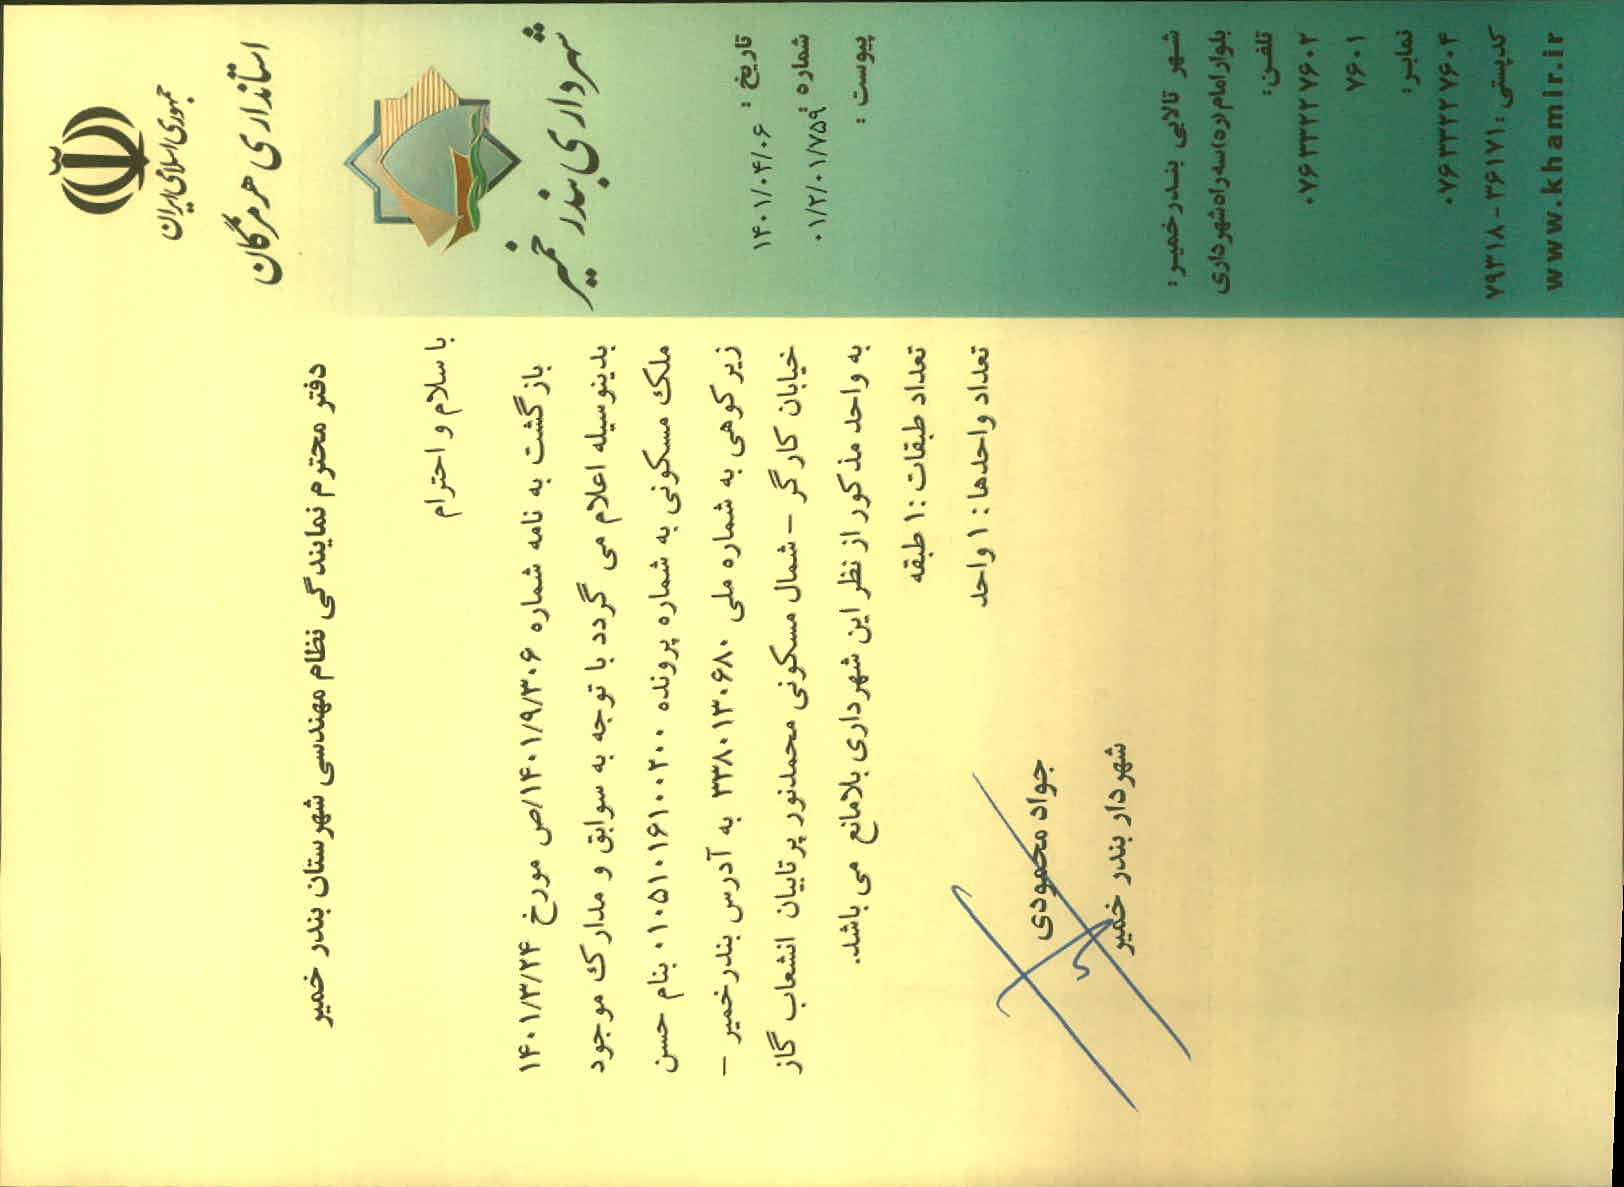 جمهوری اسلامی ایران
استانداری هرمزگان
شهرداری بندر خمیر
تاریخ : ۱۴۰۱/۰۴/۰۶
شماره : ۰۱/۲/۰۱/۷۵۹
پیوست :
دفتر محترم نمایندگی نظام مهندسی شهرستان بندر خمیر
با سلام و احترام
بازگشت به نامه شماره ۱۴۰۱/۹/۳۰۶/ص مورخ ۱۴۰۱/۳/۲۴
بدینوسیله اعلام می گردد با توجه به سوابق و مدارک موجود
ملک مسکونی به شماره پرونده ۰۱۰۵۱۰۱۶۱۰۰۲۰۰ بنام حسن
زیرکوهی به شماره ملی ۳۳۸۰۱۳۰۶۸۰ به آدرس بندرخمیر –
خیابان کارگر – شمال مسکونی محمدنور پرتابیان انشعاب گاز
به واحد مذکور از نظر این شهرداری بلامانع می باشد.
تعداد طبقات :۱ طبقه
تعداد واحدها : ۱ واحد
جواد محمودی
شهردار بندر خمیر
شهر تالابی بندرخمیر:
بلوار امام (ره) سه راه شهرداری
تلفن:
۰۷۶۳۳۲۲۷۶۰۲
۷۶۰۱
نمابر:
۰۷۶۳۳۲۲۷۶۰۴
کدپستی : ۳۶۱۷۱-۷۹۳۱۸
www.khamir.ir